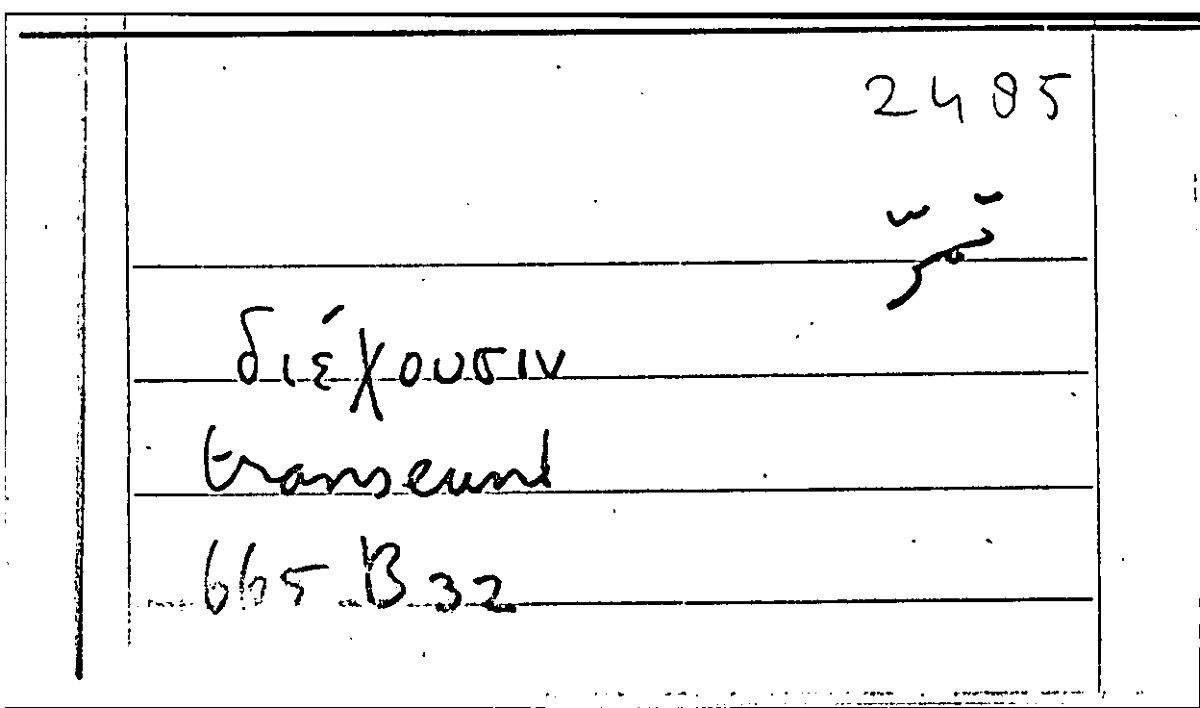 2485
διέχουσιν
transeunt
665 B 32